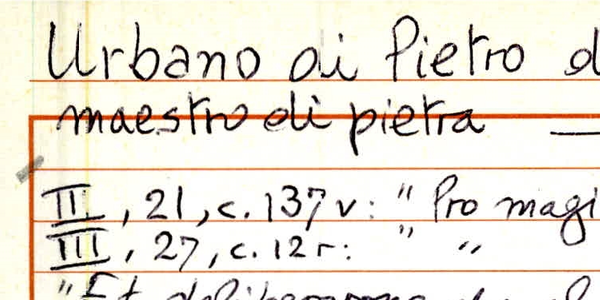 Urbano di Pietro d
maestro di pietra —
II, 21, c. 137v: "Pro magi
III, 27, c. 12r: " "
"Et